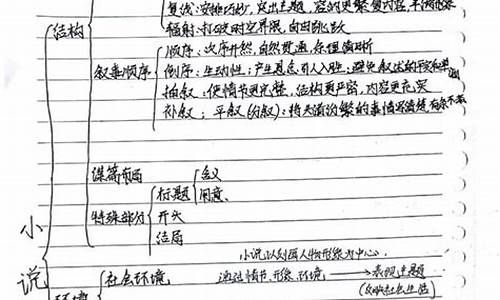 复线：安排巧妙，突出主题，容纳更繁复内容，丰满
辐射：打破时空界限，自由跳跃
结构
顺序：次序井然，自然贯通，条理清晰
叙事顺序
倒序：生动性；产生悬念引人入胜；避免叙述的平实和单调
插叙：使情节更完整，结构更严密，内容更充实
补叙；平叙(分叙)：将头绪纷繁的事情写清楚，有条不紊
谋篇布局
标题
含义
用意
特殊部分
开头
结局
小说
小说以刻画人物形象为中心，
社会环境
通过情节、形象、环境
表现主题
(反映社会生活)
环境